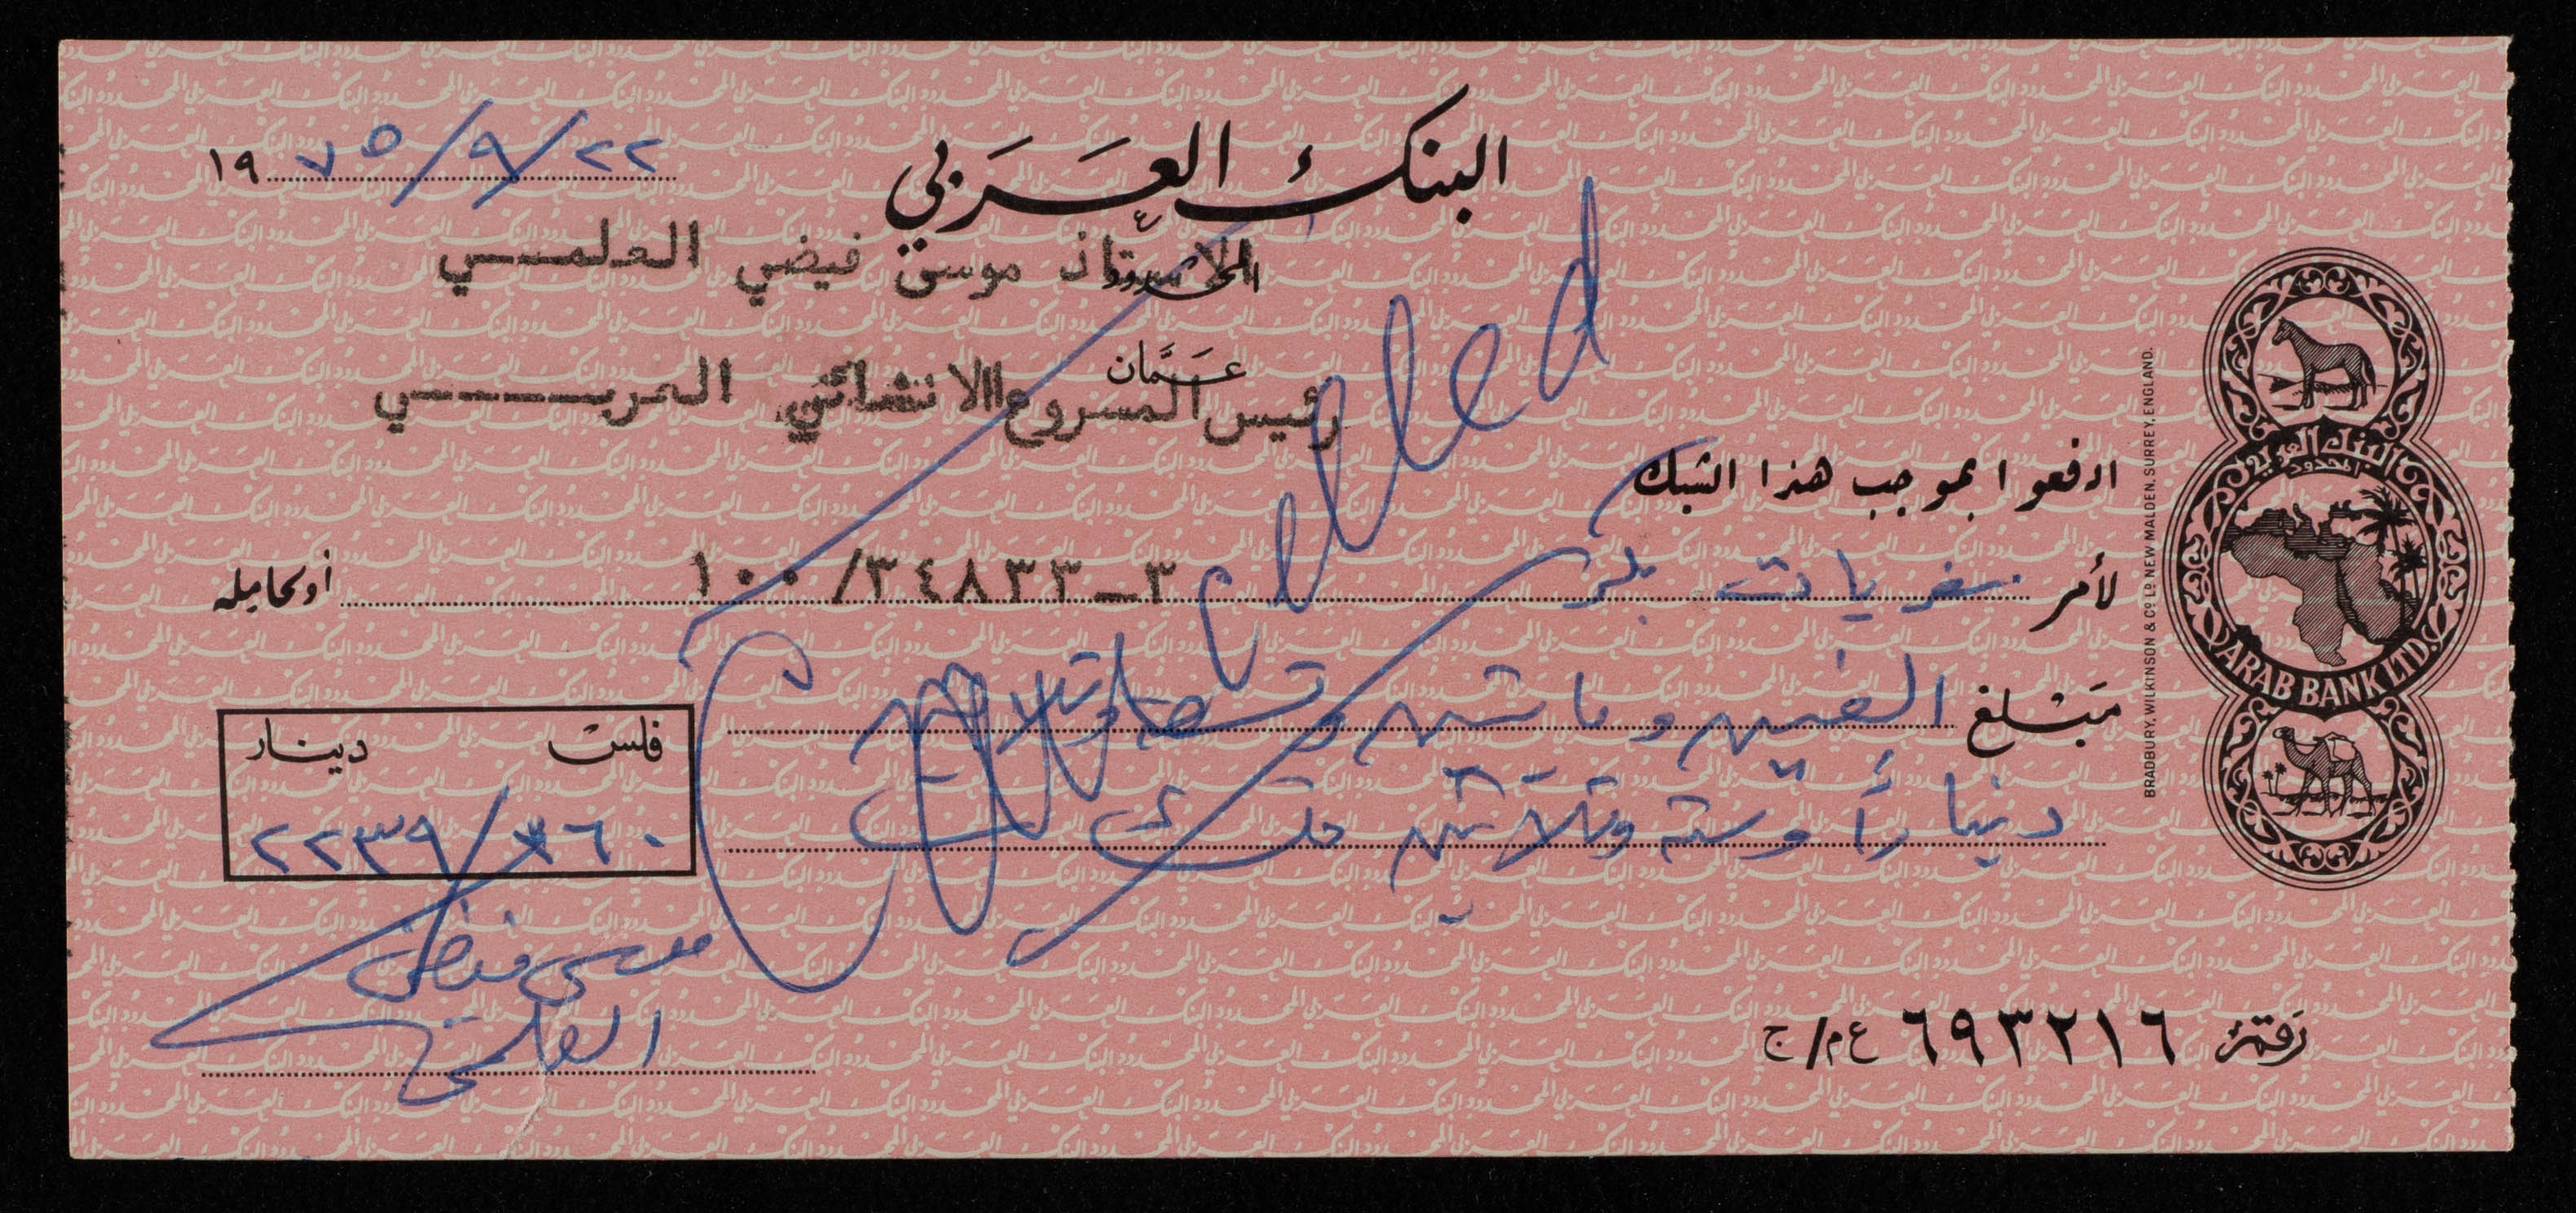 البنك العربي
١٩ ٧٥/٩/٢٢
المحدود
الاستاذ موسى فيضي العلمــي
عمان
رئيس المسروع الانشائي العربـــي
ادفعوا بموجب هذا الشيك
لأمر سفريات أولحامله
١٠٠/٣٤٨٣٣-٣
مبلغ الفين ومائتين وتسعة وثلاثين
ديناراً وستة وثلاثين
دينار فلس
٢٢٣٩/٣٦٠
cancelled
موسى فيضي
العلمي
رقم ٦٩٣٢١٦ ع م/ج
البنك العربي
المحدود
ARAB BANK LTD.
BRADBURY, WILKINSON & Cº Lᴰ NEW MALDEN, SURREY, ENGLAND.